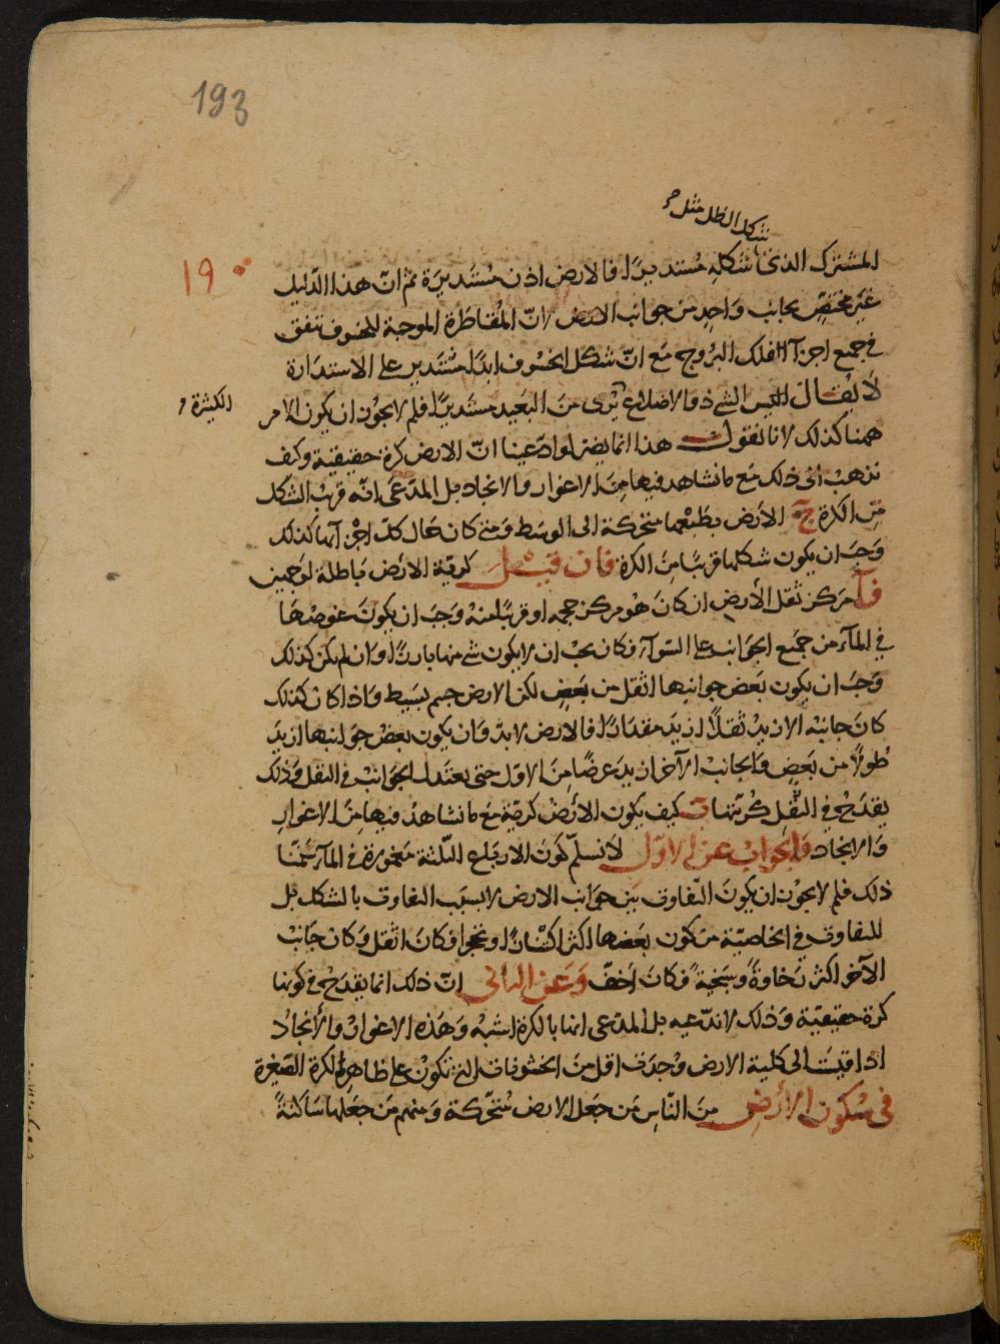 193
شكل الظل مثل
١٩
المشترك الذى شكله مستديرًا فالارض اذن مستديرة ثم انّ هذا الدّليل
غير مختص بجانب واحد من جوانب الارض لانّ المُقاطَرة الموجبة للخسوف تتفق
فى جميع اجزآء فلك البُروج مع انّ شكل الخسُوف ابدًا مُستدير على الاستدارة
لا يُقال اليس الشئ ذو الاضلاع يُرى من البَعيد مستديرًا فلم لا يجوز ان يكون الامر
الكثيرة
ههنا كذلك لانا نقول هذا انما يضر لو ادّعينا انّ الارض كرة حقيقية وكيف
نذهب الى ذلك مَع ما نشاهد فيها من الاغوار والانجاد بل المدّعى انّه قريب الشكل
من الكرة ج الارض بطبعها متحركة الى الوسَط ومتى كان حال كلّ اجزآئها كذلك
وجبَ ان يكون شكلها قريبًا من الكرة فان قيل كريّة الارض باطلة لوجهين
آ مركز ثقل الأرض ان كان هو مركز حجمه او قريبًا منه وجب ان يكون غوصُها
فى المآء من جميع الجوانب على السّوآء فكان يجب ان لا يكون شئ منها بارزًا وان لم يكن كذلك
وجبَ ان يكون بَعض جوانبها اثقل من بَعض لكن الارض جسم بسيط واذا كان كذلك
كان جانبُه الازيد ثقلًا ازيد مقدارًا فالارض لا بدّ وان يكون بعض جوانبها ازيد
طُولًا من بَعض والجانب الآخر ازيد عرضًا من الاول حتى يعتدل الجوانب فى الثقل وذلك
يقدَح فى الثقل كُريّتها ب كيف يكون الارض كريّة مع ما نشاهدُ فيها من الاغوار
والانجاد والجواب عن الاوّل لا نسلّم كون الارباع الثلثة مغمورة فى المآء سَلّمنا
ذلك فلم لا يجوز ان يكون التّفاوت بين جوانب الارض لا بسبَب التفاوت بالشكل بل
للتفاوت فى الخاصيّة فتكون بَعضها اكثر اكتنازًا وتحجرا فكان اثقل وكان جانب
الآخر اكثر رَخاوةً وسَبخيةً فكان اخفّ وعن الثانى انّ ذلك انما يقدح فى كونها
كرة حقيقيّة وذلك لا ندّعيه بل المدّعى انها بالكرة اشبهُ وهَذه الاغوار والأنجادُ
اذا قيسَت الى كلية الارض وُجدت اقل من الخشونات التى تكون على ظاهر الكرة الصّغيرة
فى سكون الارض منَ النّاس مَن جعل الارض مُتحرّكة ومنهم مَن جعلها ساكنةً